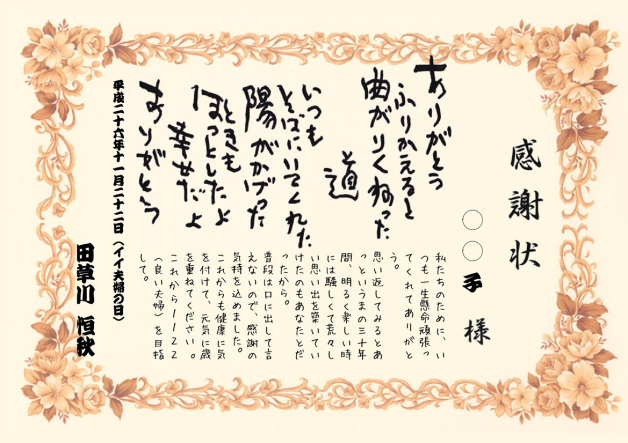 感謝状
〇〇子 様
ありがとう
ふりかえると
曲がりくねった
道
いつも
そばにいてくれた
陽がかげった
ときも
ほっとしたよ
幸せだよ
ありがとう
私たちのために、い
つも一生懸命頑張っ
てくれてありがと
う。
思い返してみるとあ
っというまの三十年
間、明るく楽しい時
には騒しくて荒々し
い思い出を築いてい
けたのもあなただ
ったから。
普段は口に出して言
えないので、感謝の
気持を込めました。
これからも健康に気
を付けて、元気に歳
を重ねてください。
これから1122
(良い夫婦)を目指
して。
平成二十六年十一月二十二日(イイ夫婦の日)
田草川 恒秋